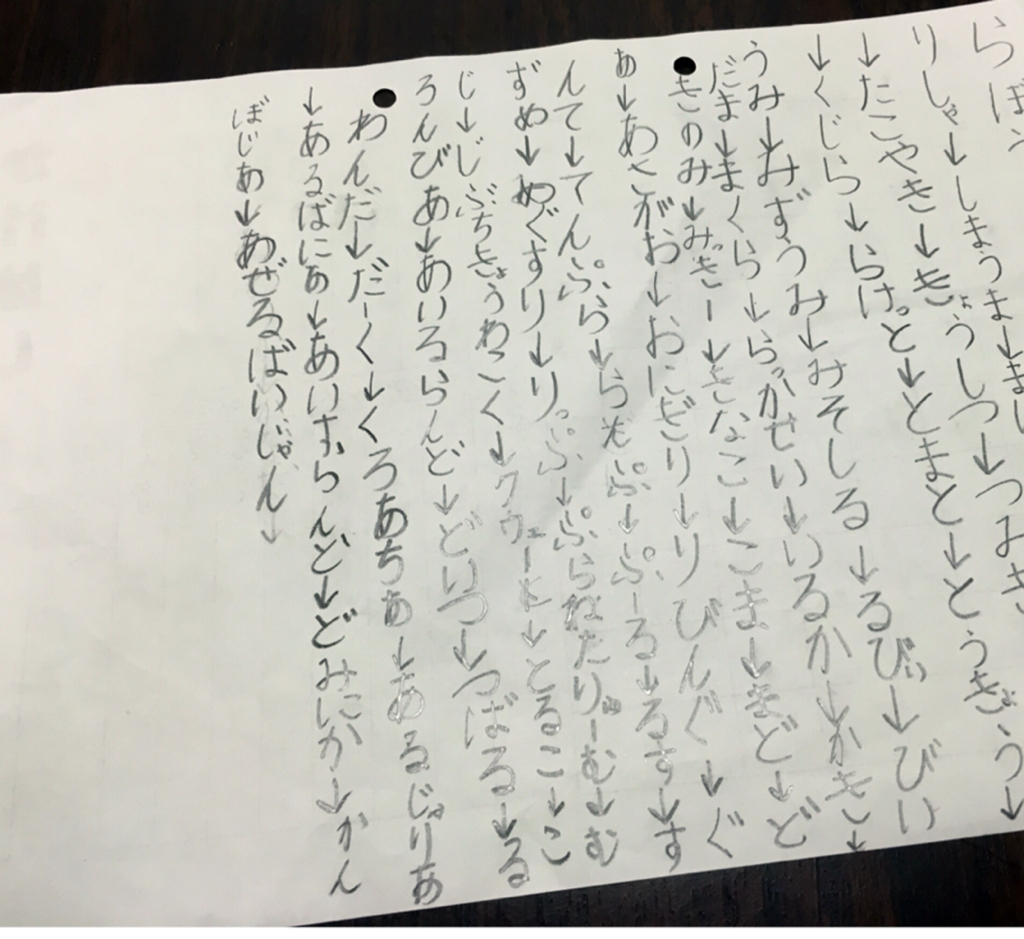 らぼう
りしゃ→しまうま→まし
→たこやき→きょうしつ→つみき
→くじら→らけっと→とまと→とうぎょう→
うみ→みずうみ→みそしる→るびぃ→びい
だま→まくら→らっかせい→いるか→かき→
きのみ→みっきー→きなこ→こま→まど→ど
あ→あさがお→おにぎり→りびんぐ→ぐ
んて→てんぷら→らっぷ→ぷーる→るす→す
ずめ→めぐすり→りっぷ→ぷらねたりゅーむ→む
じ→じぶちきょうわこく→クウェート→とるこ→こ
ろんびあ→あいるらんど→どいつ→つばる→る
わんだ→だーく→くろあちあ→あるじゃりあ
→あるばにあ→あいすらんど→どみにか→かん
ぼじあ→あぜるばいじゃん→